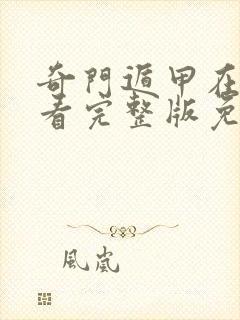 奇門遁甲在
看完整版免
風嵐